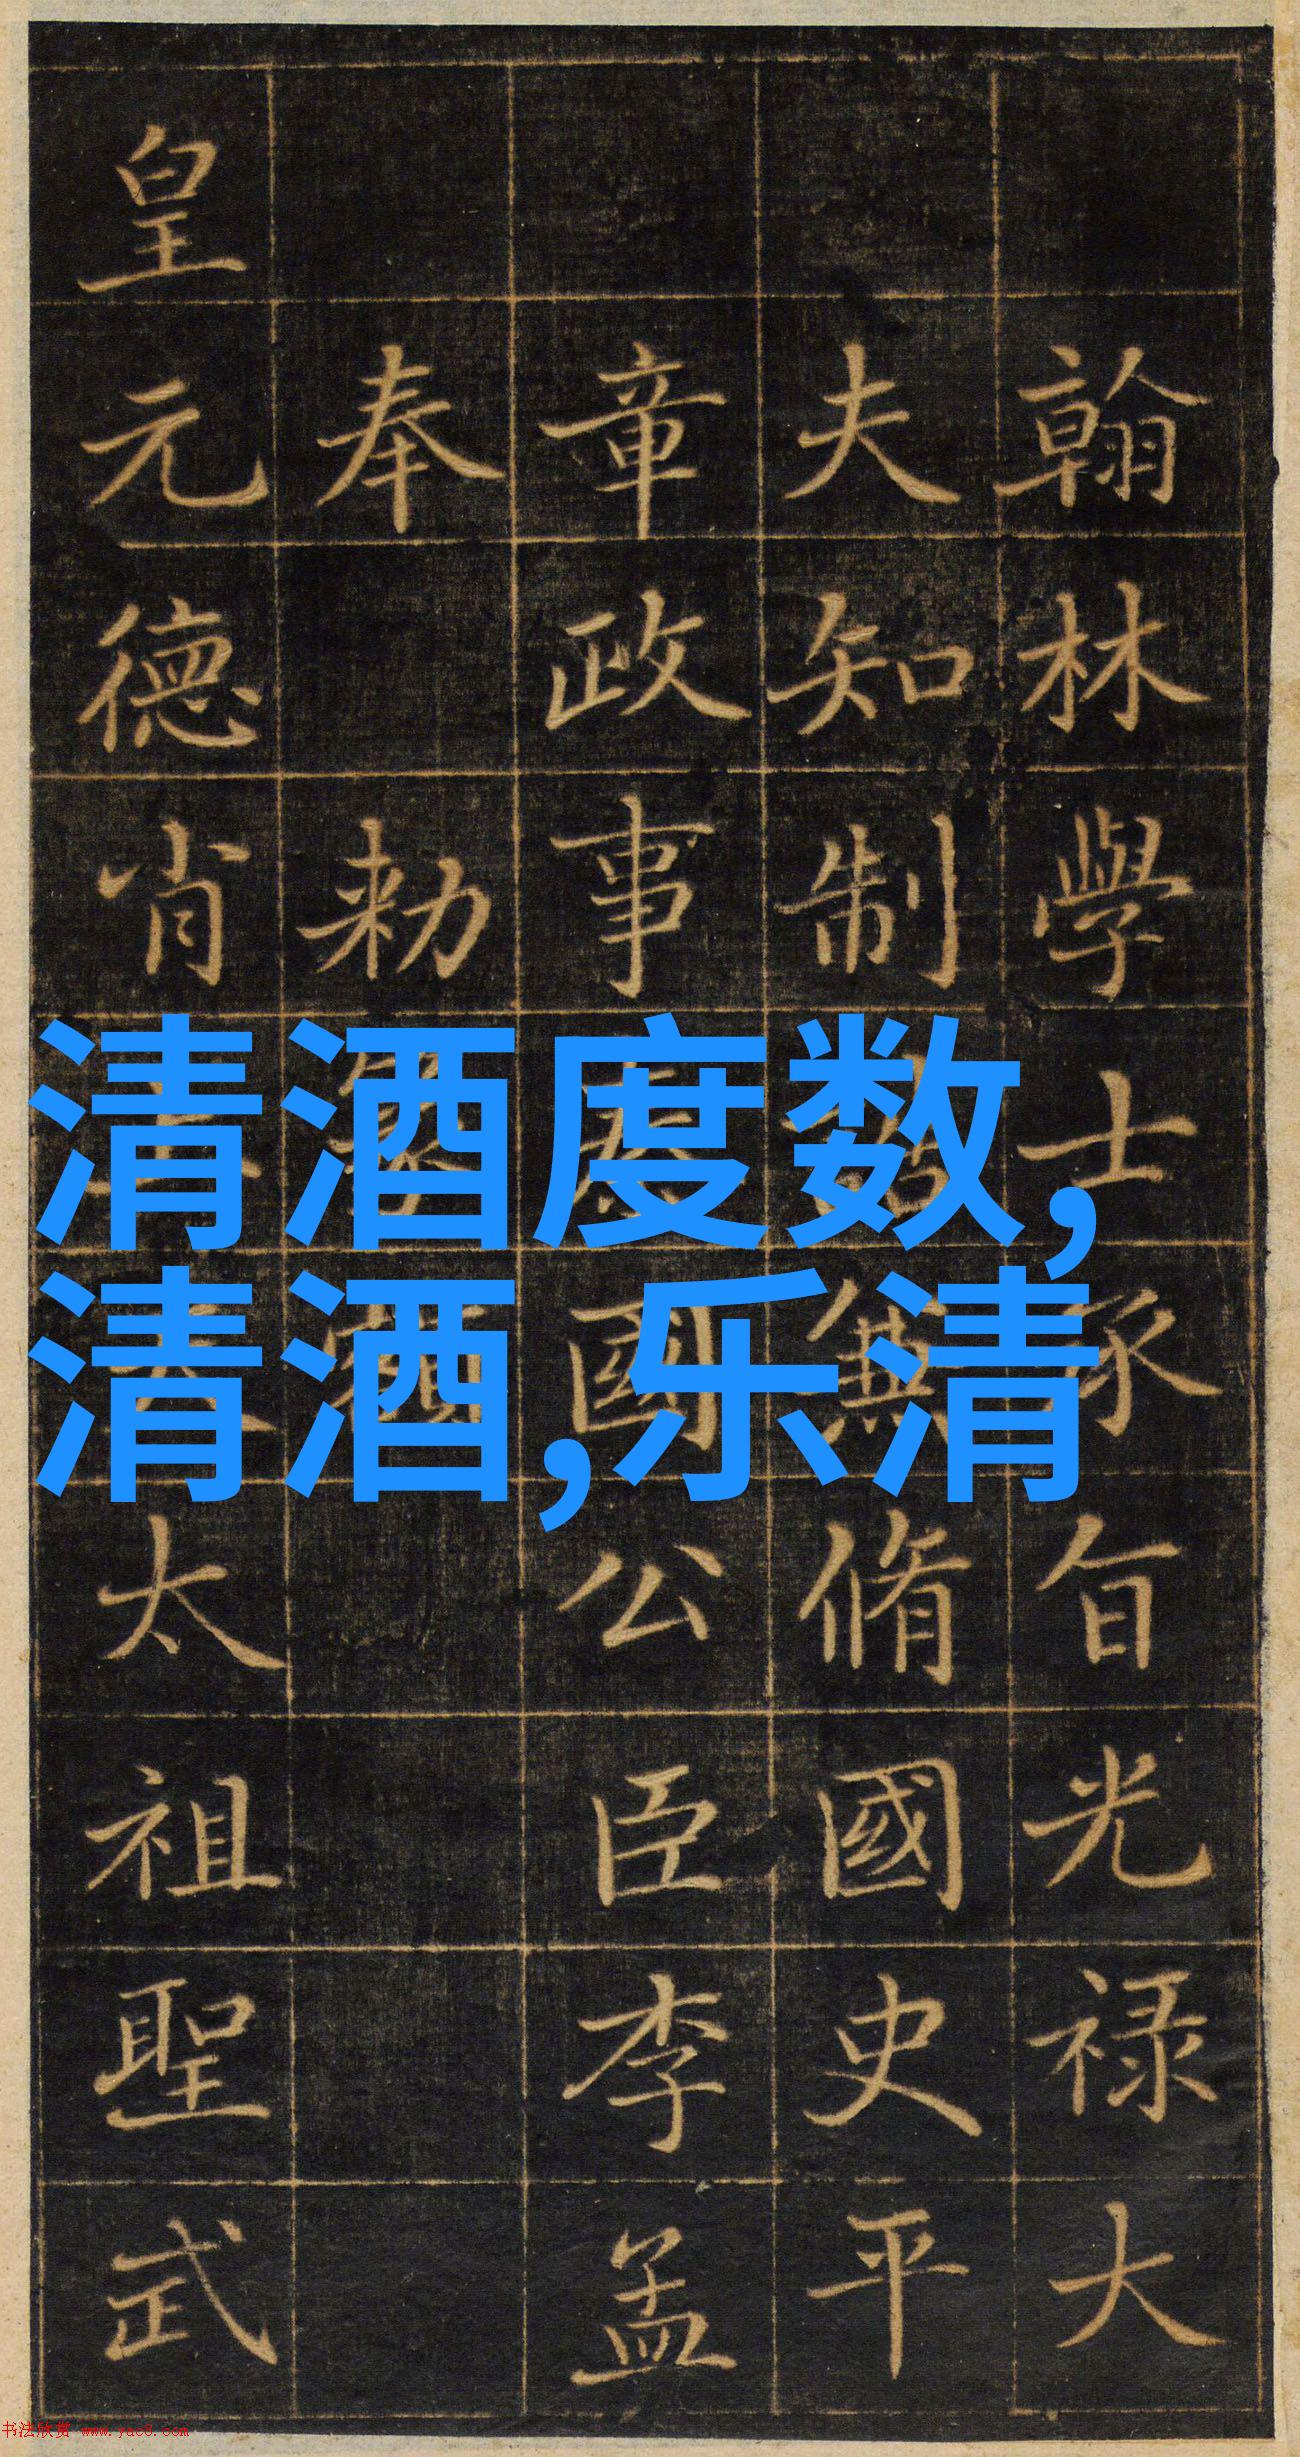 清酒度数,
清酒,乐清
翰林學士承旨光禄大
夫知制誥兼脩國史平
章政事秦國公臣李孟
奉 勅篆額
皇元德肖上天太祖聖武
书法欣赏 www.yac8.com